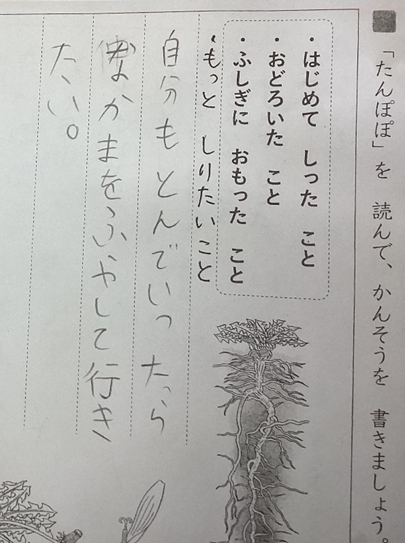 「たんぽぽ」を 読んで、かんそうを 書きましょう。
・はじめて しった こと
・おどろいた こと
・ふしぎに おもった こと
・もっと しりたいこと
自分もとんでいったら
なかまをふやして行き
たい。